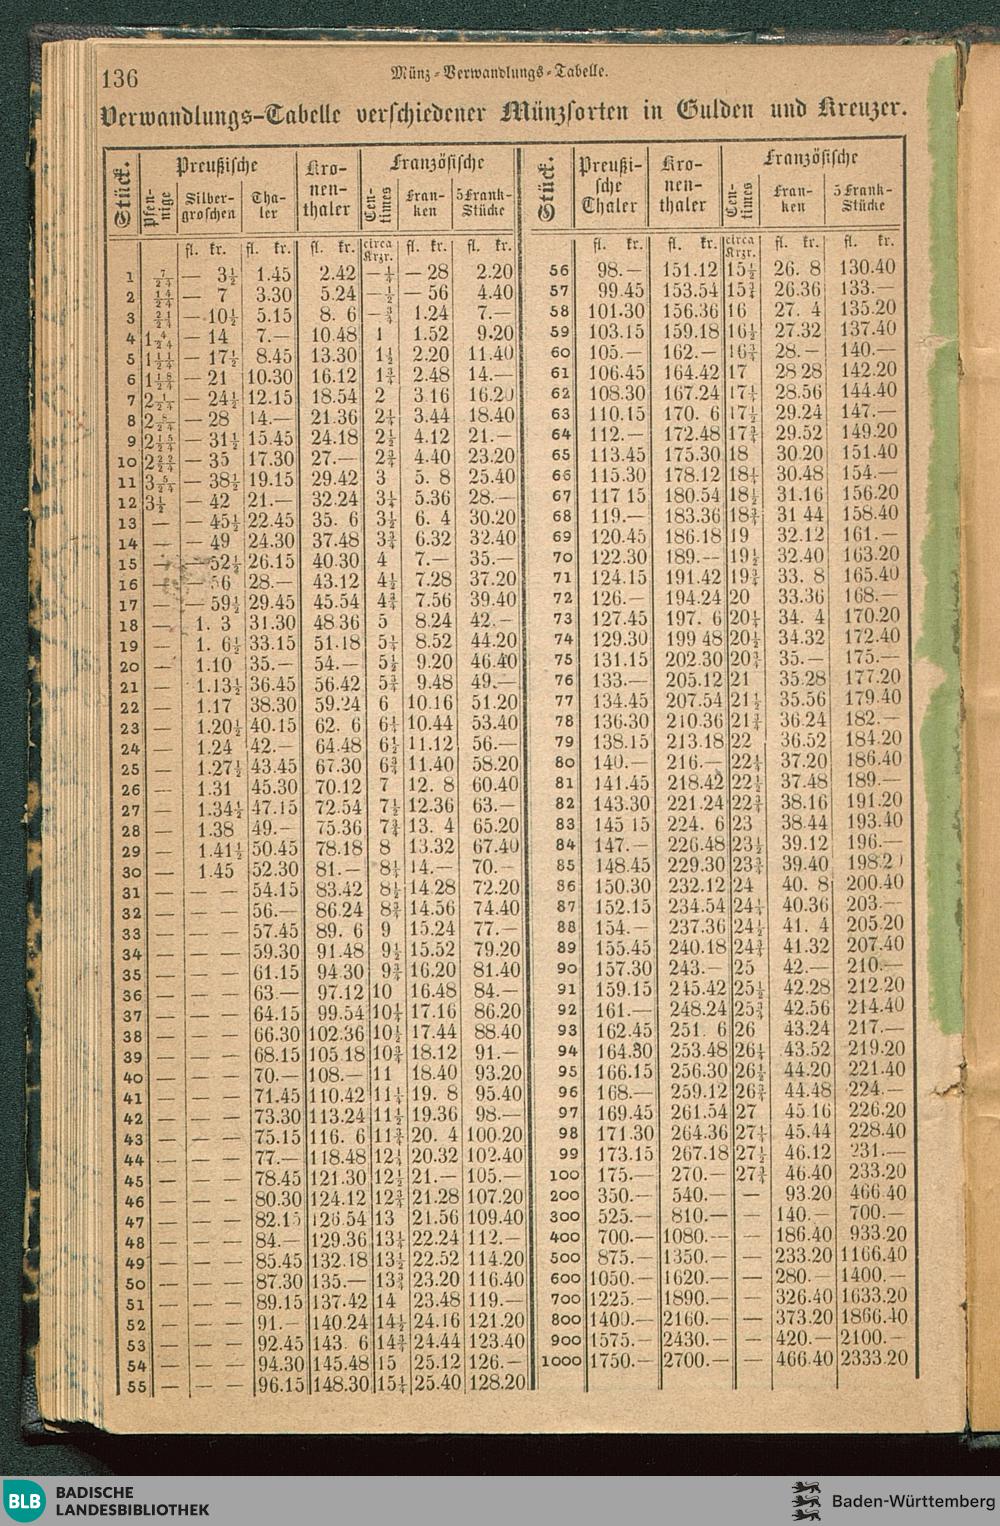 136
Münz-Verwandlungs-Tabelle.
Verwandlungs-Tabelle verschiedener Münzsorten in Gulden und Kreuzer.
Stück. Preußische Kronenthaler Französische
Pfennige Silbergroschen Thaler Centimes Franken 5 Frank-Stücke
fl. kr. fl. kr. fl. kr. circa Krzr. fl. kr. fl. kr.
1 7/24 — 3½ 1.45 2.42 —¼ — 28 2.20
2 14/24 — 7 3.30 5.24 —½ — 56 4.40
3 21/24 — 10½ 5.15 8. 6 —¾ 1.24 7.—
4 1 4/24 — 14 7.— 10.48 1 1.52 9.20
5 1 11/24 — 17½ 8.45 13.30 1½ 2.20 11.40
6 1 18/24 — 21 10.30 16.12 1¾ 2.48 14.—
7 2 1/24 — 24½ 12.15 18.54 2 3.16 16.20
8 2 8/24 — 28 14.— 21.36 2¼ 3.44 18.40
9 2 15/24 — 31½ 15.45 24.18 2½ 4.12 21.—
10 2 22/24 — 35 17.30 27.— 2¾ 4.40 23.20
11 3 5/24 — 38½ 19.15 29.42 3 5. 8 25.40
12 3½ — 42 21.— 32.24 3¼ 5.36 28.—
13 — — 45½ 22.45 35. 6 3½ 6. 4 30.20
14 — — 49 24.30 37.48 3¾ 6.32 32.40
15 — — 52½ 26.15 40.30 4 7.— 35.—
16 — — 56 28.— 43.12 4½ 7.28 37.20
17 — — 59½ 29.45 45.54 4¾ 7.56 39.40
18 — 1. 3 31.30 48.36 5 8.24 42.—
19 — 1. 6½ 33.15 51.18 5¼ 8.52 44.20
20 — 1.10 35.— 54.— 5½ 9.20 46.40
21 — 1.13½ 36.45 56.42 5¾ 9.48 49.—
22 — 1.17 38.30 59.24 6 10.16 51.20
23 — 1.20½ 40.15 62. 6 6¼ 10.44 53.40
24 — 1.24 42.— 64.48 6½ 11.12 56.—
25 — 1.27½ 43.45 67.30 6¾ 11.40 58.20
26 — 1.31 45.30 70.12 7 12. 8 60.40
27 — 1.34½ 47.15 72.54 7½ 12.36 63.—
28 — 1.38 49.— 75.36 7¾ 13. 4 65.20
29 — 1.41½ 50.45 78.18 8 13.32 67.40
30 — 1.45 52.30 81.— 8¼ 14.— 70.—
31 — — — 54.15 83.42 8½ 14.28 72.20
32 — — — 56.— 86.24 8¾ 14.56 74.40
33 — — — 57.45 89. 6 9 15.24 77.—
34 — — — 59.30 91.48 9½ 15.52 79.20
35 — — — 61.15 94.30 9¾ 16.20 81.40
36 — — — 63.— 97.12 10 16.48 84.—
37 — — — 64.15 99.54 10¼ 17.16 86.20
38 — — — 66.30 102.36 10½ 17.44 88.40
39 — — — 68.15 105.18 10¾ 18.12 91.—
40 — — — 70.— 108.— 11 18.40 93.20
41 — — — 71.45 110.42 11¼ 19. 8 95.40
42 — — — 73.30 113.24 11½ 19.36 98.—
43 — — — 75.15 116. 6 11¾ 20. 4 100.20
44 — — — 77.— 118.48 12¼ 20.32 102.40
45 — — — 78.45 121.30 12½ 21.— 105.—
46 — — — 80.30 124.12 12¾ 21.28 107.20
47 — — — 82.15 126.54 13 21.56 109.40
48 — — — 84.— 129.36 13¼ 22.24 112.—
49 — — — 85.45 132.18 13½ 22.52 114.20
50 — — — 87.30 135.— 13¾ 23.20 116.40
51 — — — 89.15 137.42 14 23.48 119.—
52 — — — 91.— 140.24 14½ 24.16 121.20
53 — — — 92.45 143. 6 14¾ 24.44 123.40
54 — — — 94.30 145.48 15 25.12 126.—
55 — — — 96.15 148.30 15¼ 25.40 128.20
Stück. Preußische Thaler Kronenthaler Französische
Centimes Franken 5 Frank-Stücke
fl. kr. fl. kr. circa Krzr. fl. kr. fl. kr.
56 98.— 151.12 15½ 26. 8 130.40
57 99.45 153.54 15¾ 26.36 133.—
58 101.30 156.36 16 27. 4 135.20
59 103.15 159.18 16½ 27.32 137.40
60 105.— 162.— 16¾ 28.— 140.—
61 106.45 164.42 17 28 28 142.20
62 108.30 167.24 17¼ 28.56 144.40
63 110.15 170. 6 17½ 29.24 147.—
64 112.— 172.48 17¾ 29.52 149.20
65 113.45 175.30 18 30.20 151.40
66 115.30 178.12 18¼ 30.48 154.—
67 117 15 180.54 18½ 31.16 156.20
68 119.— 183.36 18¾ 31 44 158.40
69 120.45 186.18 19 32.12 161.—
70 122.30 189.— 19½ 32.40 163.20
71 124.15 191.42 19¾ 33. 8 165.40
72 126.— 194.24 20 33.36 168.—
73 127.45 197. 6 20¼ 34. 4 170.20
74 129.30 199 48 20½ 34.32 172.40
75 131.15 202.30 20¾ 35.— 175.—
76 133.— 205.12 21 35.28 177.20
77 134.45 207.54 21½ 35.56 179.40
78 136.30 210.36 21¾ 36.24 182.—
79 138.15 213.18 22 36.52 184.20
80 140.— 216.— 22¼ 37.20 186.40
81 141.45 218.42 22½ 37.48 189.—
82 143.30 221.24 22¾ 38.16 191.20
83 145 15 224. 6 23 38.44 193.40
84 147.— 226.48 23½ 39.12 196.—
85 148.45 229.30 23¾ 39.40 198.20
86 150.30 232.12 24 40. 8 200.40
87 152.15 234.54 24¼ 40.36 203.—
88 154.— 237.36 24½ 41. 4 205.20
89 155.45 240.18 24¾ 41.32 207.40
90 157.30 243.— 25 42.— 210.—
91 159.15 245.42 25½ 42.28 212.20
92 161.— 248.24 25¾ 42.56 214.40
93 162.45 251. 6 26 43.24 217.—
94 164.30 253.48 26¼ 43.52 219.20
95 166.15 256.30 26½ 44.20 221.40
96 168.— 259.12 26¾ 44.48 224.—
97 169.45 261.54 27 45.16 226.20
98 171.30 264.36 27¼ 45.44 228.40
99 173.15 267.18 27½ 46.12 231.—
100 175.— 270.— 27¾ 46.40 233.20
200 350.— 540.— — 93.20 466.40
300 525.— 810.— — 140.— 700.—
400 700.— 1080.— — 186.40 933.20
500 875.— 1350.— — 233.20 1166.40
600 1050.— 1620.— — 280.— 1400.—
700 1225.— 1890.— — 326.40 1633.20
800 1400.— 2160.— — 373.20 1866.40
900 1575.— 2430.— — 420.— 2100.—
1000 1750.— 2700.— — 466.40 2333.20
BLB BADISCHE LANDESBIBLIOTHEK
Baden-Württemberg